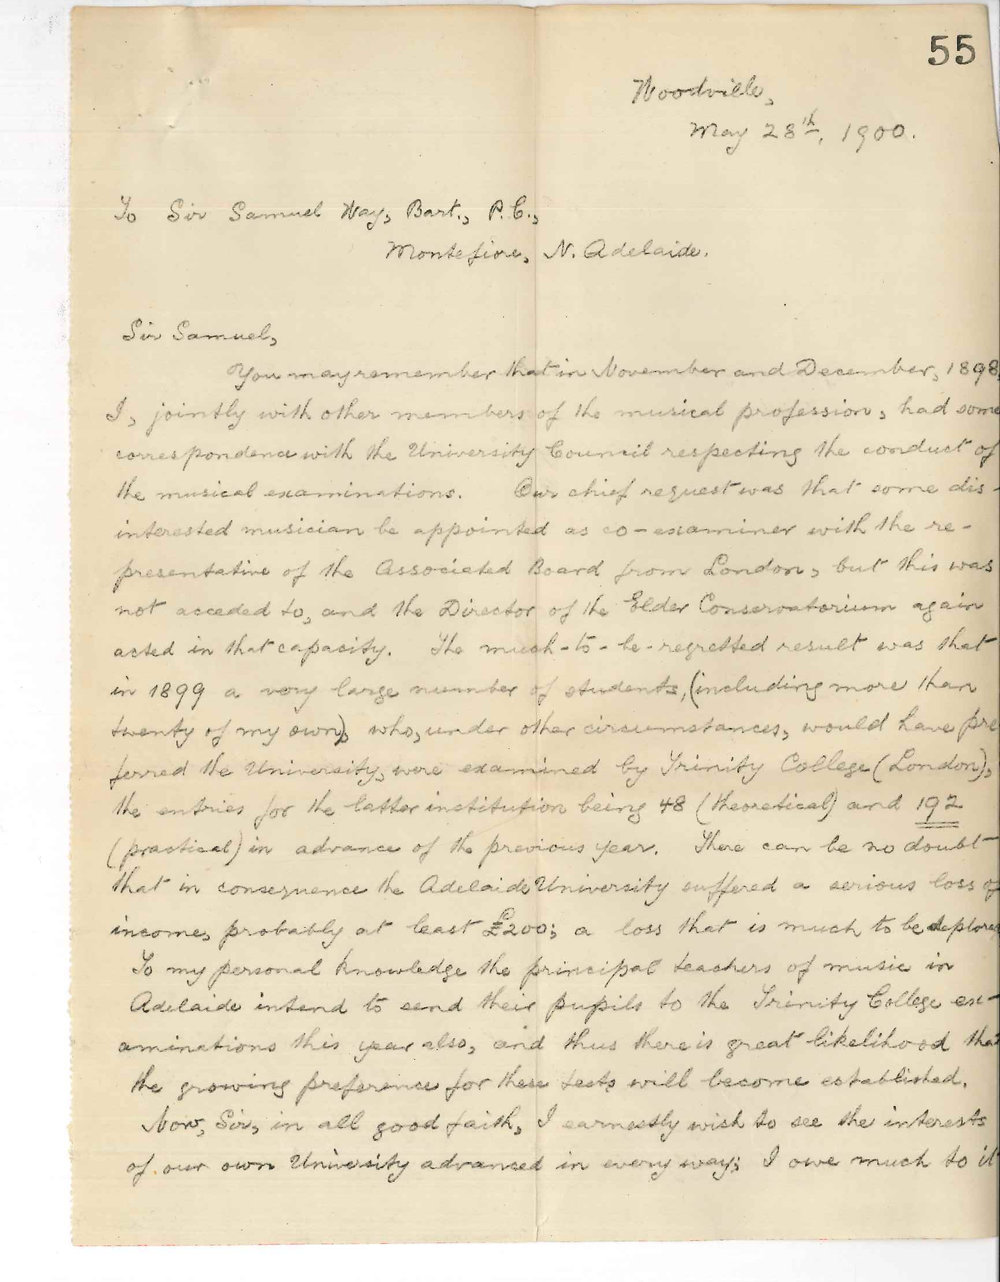 55
Woodville,
May 28th, 1900.
To Sir Samuel Way, Bart., P.C.,
Montefiore, N. Adelaide.
Sir Samuel,
You may remember that in November and December, 1898,
I, jointly with other members of the musical profession, had some
correspondence with the University Council respecting the conduct of
the musical examinations. Our chief request was that some dis-
interested musician be appointed as co-examiner with the re-
presentative of the Associated Board from London, but this was
not acceded to, and the Director of the Elder Conservatorium again
acted in that capacity. The much-to-be-regretted result was that
in 1899 a very large number of students, (including more than
twenty of my own), who, under other circumstances, would have pre
ferred the University, were examined by Trinity College (London),
the entries for the latter institution being 48 (theoretical) and 192
(practical) in advance of the previous year. There can be no doubt
that in consequence the Adelaide University suffered a serious loss of
income, probably at least £200; a loss that is much to be deplored
To my personal knowledge the principal teachers of music in
Adelaide intend to send their pupils to the Trinity College ex-
aminations this year also, and thus there is great likelihood that
the growing preference for these tests will become established.
Now, Sir, in all good faith, I earnestly wish to see the interests
of our own University advanced in every way; I owe much to it